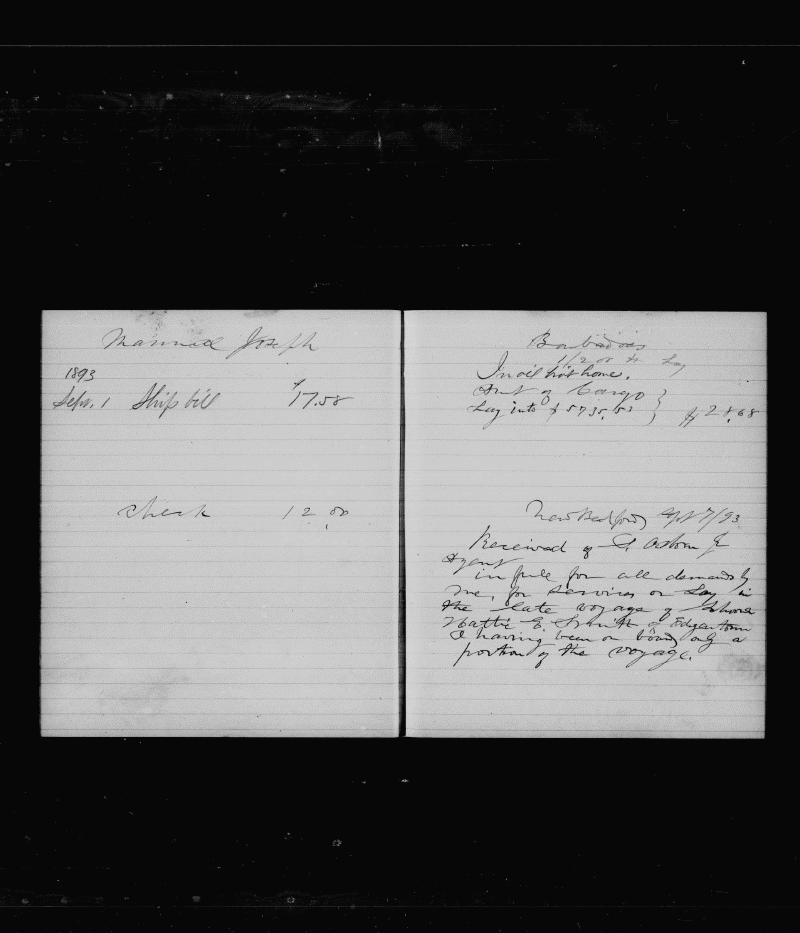 Manuel Joseph
1893
Sep. 1 Ship bill $17.58
Check 12.00
Barbadoes
1/200 Lay
In oil not home.
Amt of Cargo
Lay into $5735.53 } $28.68
New Bedford Sept 7/93
Received of S. Osborn Jr
Agent
in full for all demands by
me, for services or Lay in
the late voyage of Schooner
Hattie E. Smith of Edgartown
I having been on board only a
portion of the voyage.